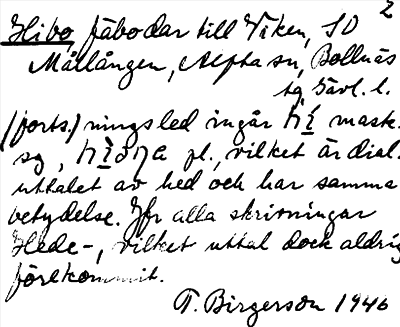 2
Hibo, fäbodar till Viken, SO
Mållången, Alfta sn, Bollnäs
tg Gävl. l.
(forts.) ningsled ingår mask.
sg, pl., vilket är dial.
uttalet av hed och har samma
betydelse. Jfr alla skrivningar
Hede-, vilket uttal dock aldrig
förekommit.
T. Birgerson 1946